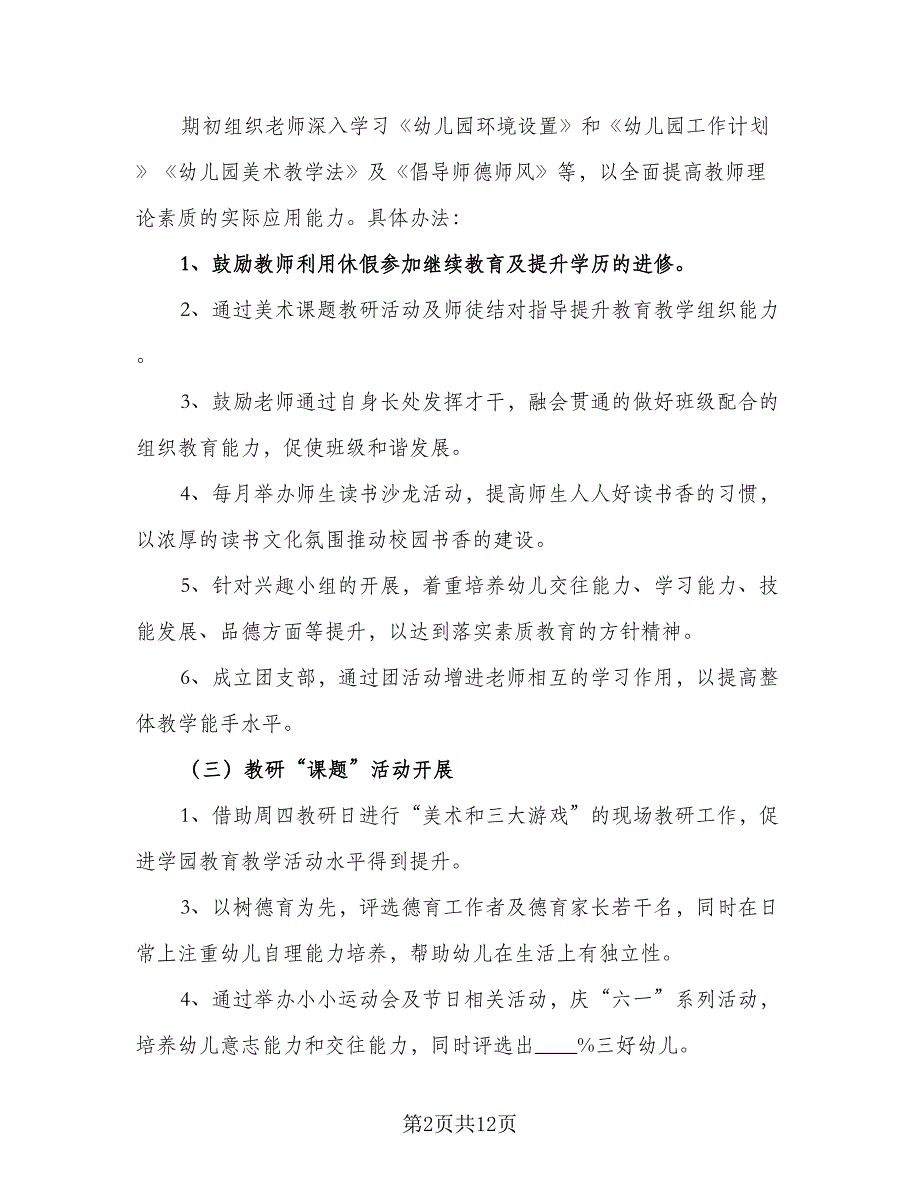 期初组织老师深入学习《幼儿园环境设置》和《幼儿园工作计划
》《幼儿园美术教学法》及《倡导师德师风》等，以全面提高教师理
论素质的实际应用能力。具体办法：
1、鼓励教师利用休假参加继续教育及提升学历的进修。
2、通过美术课题教研活动及师徒结对指导提升教育教学组织能力
。
3、鼓励老师通过自身长处发挥才干，融会贯通的做好班级配合的
组织教育能力，促使班级和谐发展。
4、每月举办师生读书沙龙活动，提高师生人人好读书香的习惯，
以浓厚的读书文化氛围推动校园书香的建设。
5、针对兴趣小组的开展，着重培养幼儿交往能力、学习能力、技
能发展、品德方面等提升，以达到落实素质教育的方针精神。
6、成立团支部，通过团活动增进老师相互的学习作用，以提高整
体教学能手水平。
（三）教研“课题”活动开展
1、借助周四教研日进行“美术和三大游戏”的现场教研工作，促
进学园教育教学活动水平得到提升。
3、以树德育为先，评选德育工作者及德育家长若干名，同时在日
常上注重幼儿自理能力培养，帮助幼儿在生活上有独立性。
4、通过举办小小运动会及节日相关活动，庆“六一”系列活动，
培养幼儿意志能力和交往能力，同时评选出____%三好幼儿。
第2页共12页